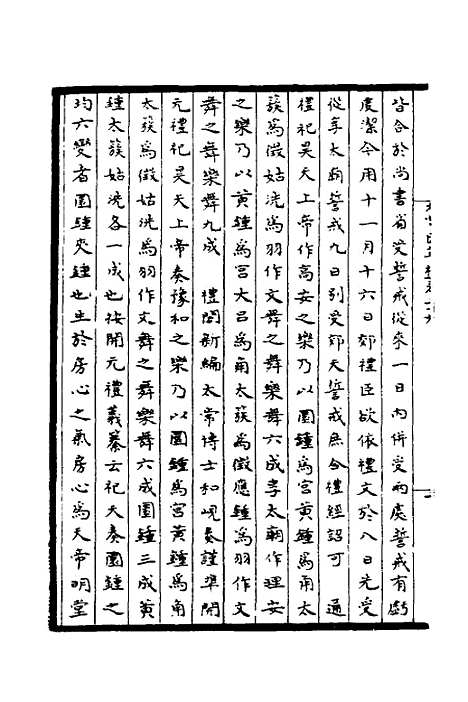 皆合於尚書省受誓戒從來一日內併受兩處誓戒有虧
虔潔今用十一月十六日郊禮臣欲依禮文於八日先受
從享太廟誓戒九日別受郊天誓戒庶合禮經詔可　通
禮祀昊天上帝作高安之樂乃以圜鍾爲宮黃鍾爲角太
簇爲徵姑洗爲羽作文舞之舞樂舞六成享太廟作理安
之樂乃以黃鍾爲宮大呂爲角太簇爲徵應鍾爲羽作文
舞之舞樂舞九成　禮閣新編太常博士和峴奏謹準開
元禮祀昊天上帝奏豫和之樂乃以圜鍾爲宮黃鍾爲角
太簇爲徵姑洗爲羽作文舞之舞樂舞六成圜鍾三成黃
鍾太簇姑洗各一成也按開元禮義纂云祀天奏圜鍾之
均六變者圜鍾夾鍾也生於房心之氣房心爲天帝明堂